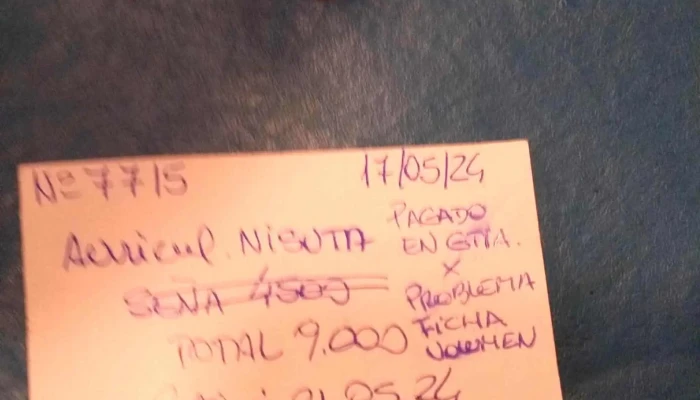 Nº 7715 17/05/24
Auricul. NISUTA
PAGADO
EN GTIA.
X
PROBLEMA
FICHA
VOLUMEN
SEÑA 4500
TOTAL 9.000
05 24